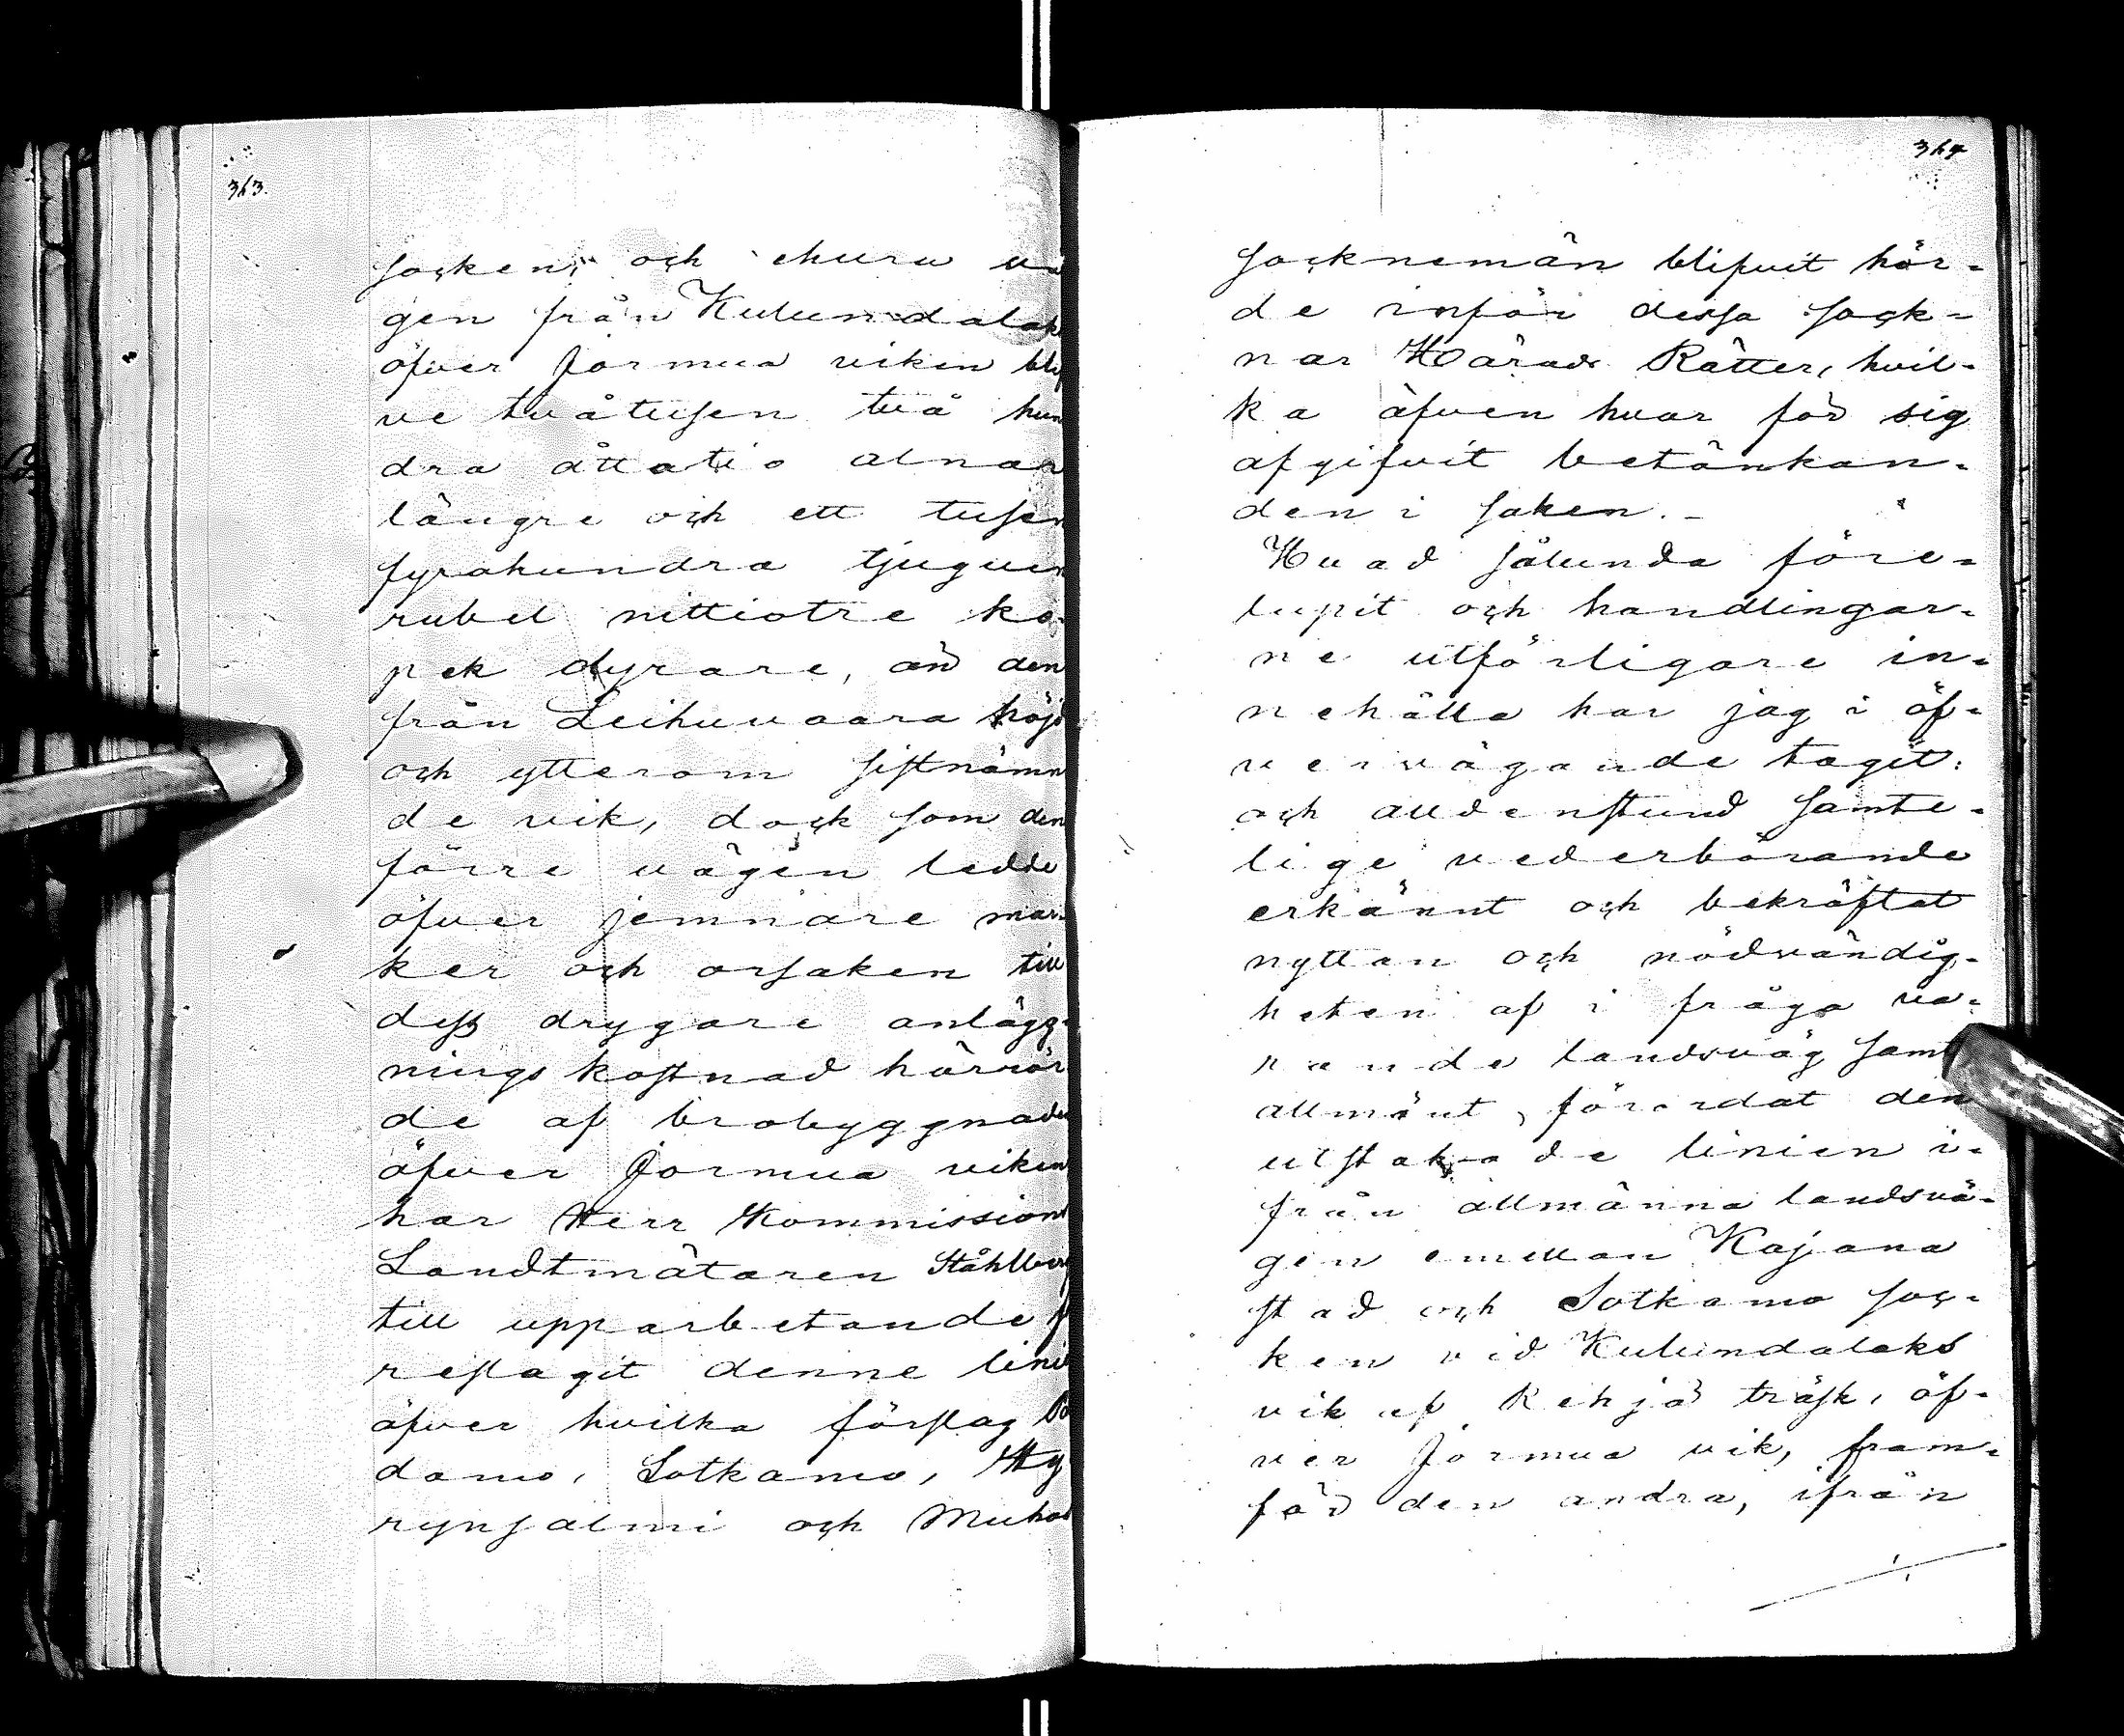 363.
socken, och ehuru vä
gen från Kulundalak
öfver Jormua viken blif
ve tvåtusen två hun
dra åttatio alnar
längre och ett tusen
fyrahundra tjuguen
rubel nittiotre ko-
pek dyrare, än den
från Leihuvaara höjd
och ytterom sistnämn
de vik, dock som den
förre vägen ledde
öfver jemnare mar-
ker och orsaken till
dess drygare anlägg-
nings kostnad härrör
de af brobyggnaden
öfver Jormua viken
har Herr Kommissions
Landtmätaren Ståhlberg
till upparbetande fö
reslagit denne linie
öfver hvilka förslag Pa
damo, Sotkamo, Hy
rynsalmi och Muhos
364
Socknemän blifvit hör-
de inför dessa sock-
nar Härads Rätter, hvil-
ka äfven hvar för sig
afgifvit betänkan-
den i saken. -
Hvad sålunda före-
lupit och handlingar-
ne utförligare in-
nehålla har jag i öf-
vervägande tagit:
och alldenstund samte-
lige vederbörande
erkännt och bekräftat
nyttan och nödvändig-
heten af i fråga va-
rande landsväg samt
allmänt förordat den
utstakade linien i-
från allmänna landsvä-
gen emellan Kajana
stad och Sotkamo soc-
ken vid Kulundalaks
vik af Rehjä träsk, öf-
ver Jormua vik, fram-
för den andra, ifrån